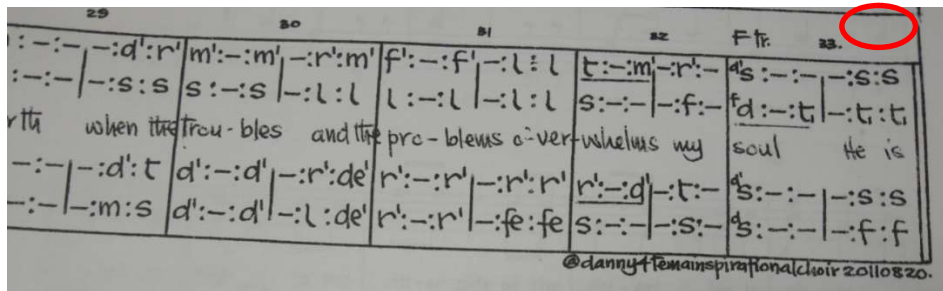 29 30 31 32 F tr. 33.
:-:-|-:d':r' m':-:m'|-:r':m' f':-:f'|-:l:l t:-:m'|-:r':- d's:-:-|-:s:s
:-:-|-:s:s s:-:s|-:l:l l:-:l|-:l:l s:-:-|-:f:- fd:-:t|-:t₁:t₁
rth when the trou-bles and the pro-blems o-ver-whelms my soul He is
-:-|-:d':t d':-:d'|-:r':de' r':-:r'|-:r':r' r':-:d'|-:t:- d's:-:-|-:s:s
-:-|-:m:s d':-:d'|-:l:de' r':-:r'|-:fe:fe s:-:-|-:s:- ds:-:-|-:f:f
@danny4temainspirationalchoir20110820.